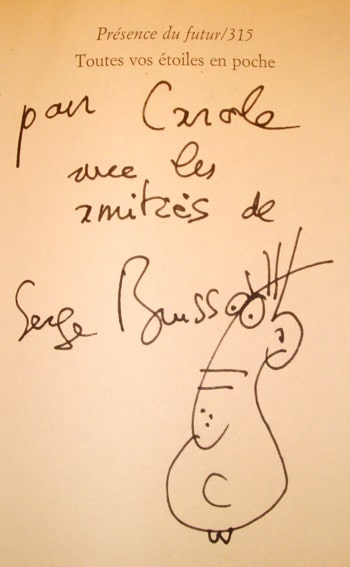 Présence du futur/315
Toutes vos étoiles en poche
pour Carole
avec les
amitiés de
Serge Brussolo